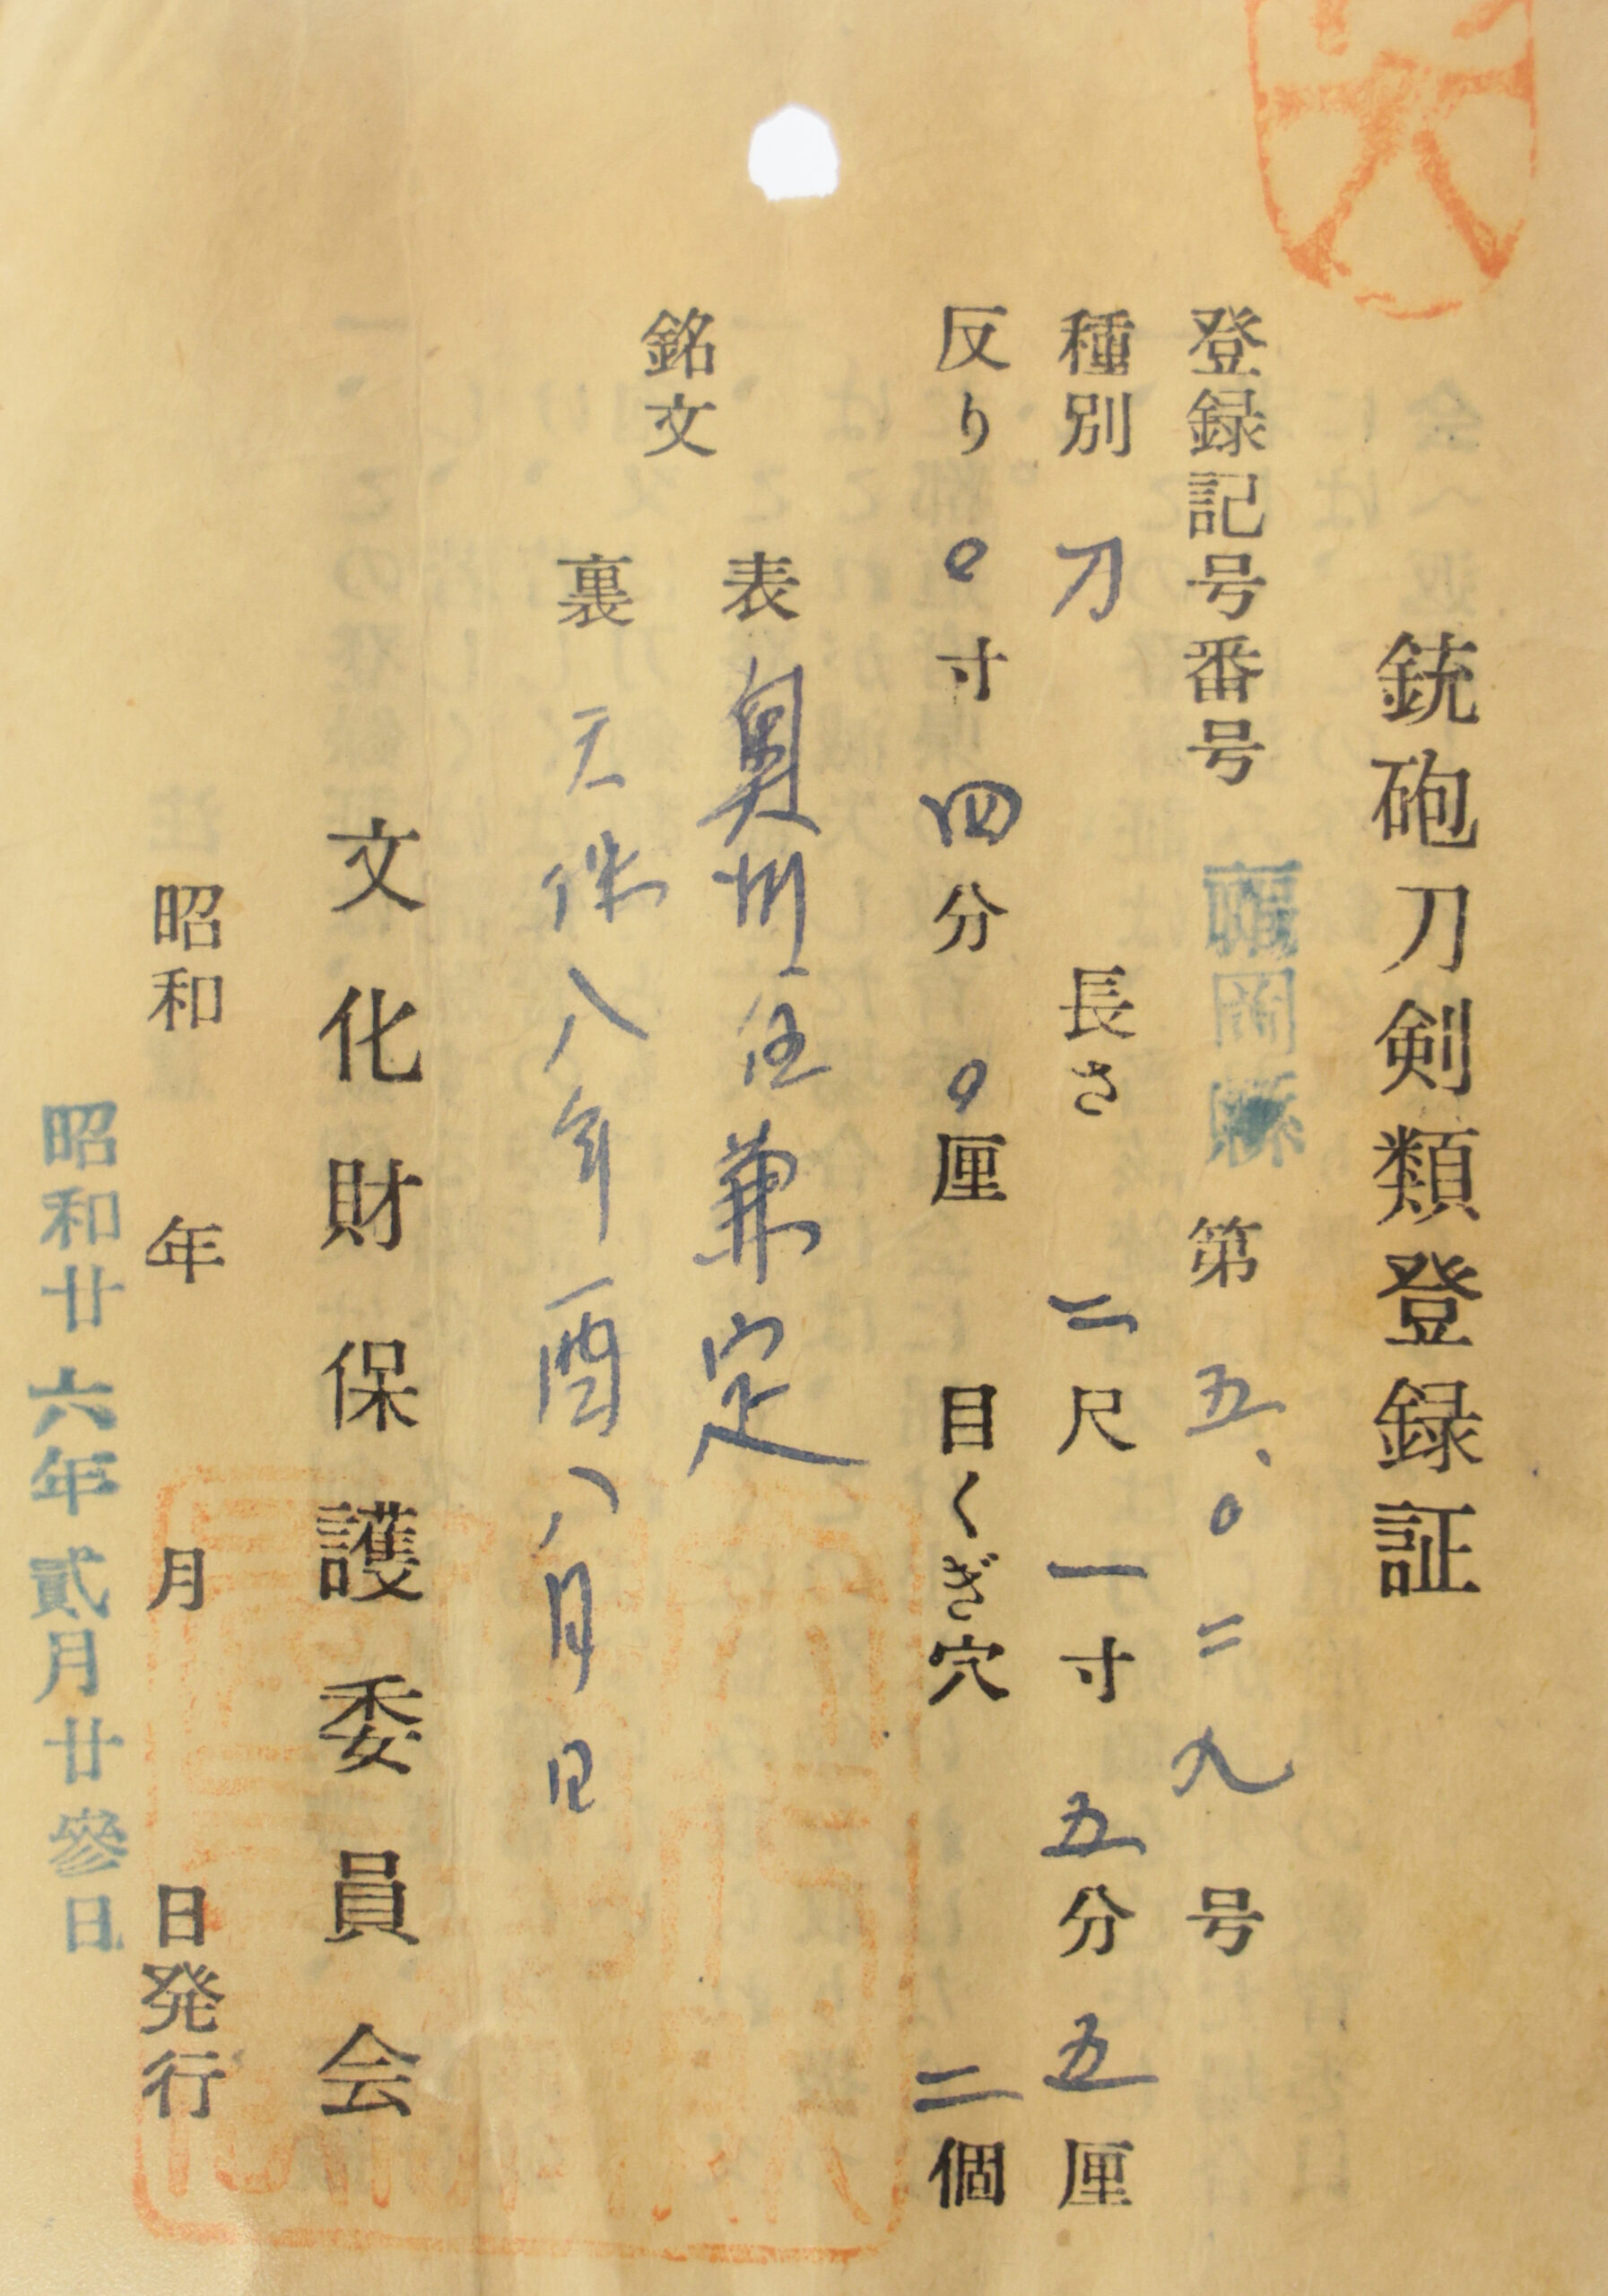 銃砲刀剣類登録証
登録記号番号 福岡縣 第五、〇二九号
種別 刀 長さ 二尺一寸五分五厘
反り 〇寸四分〇厘 目くぎ穴 二個
銘文
表 奥州住兼定
裏 天保八年酉八月日
文化財保護委員会
昭和 年 月 日発行
昭和廿六年貳月廿參日